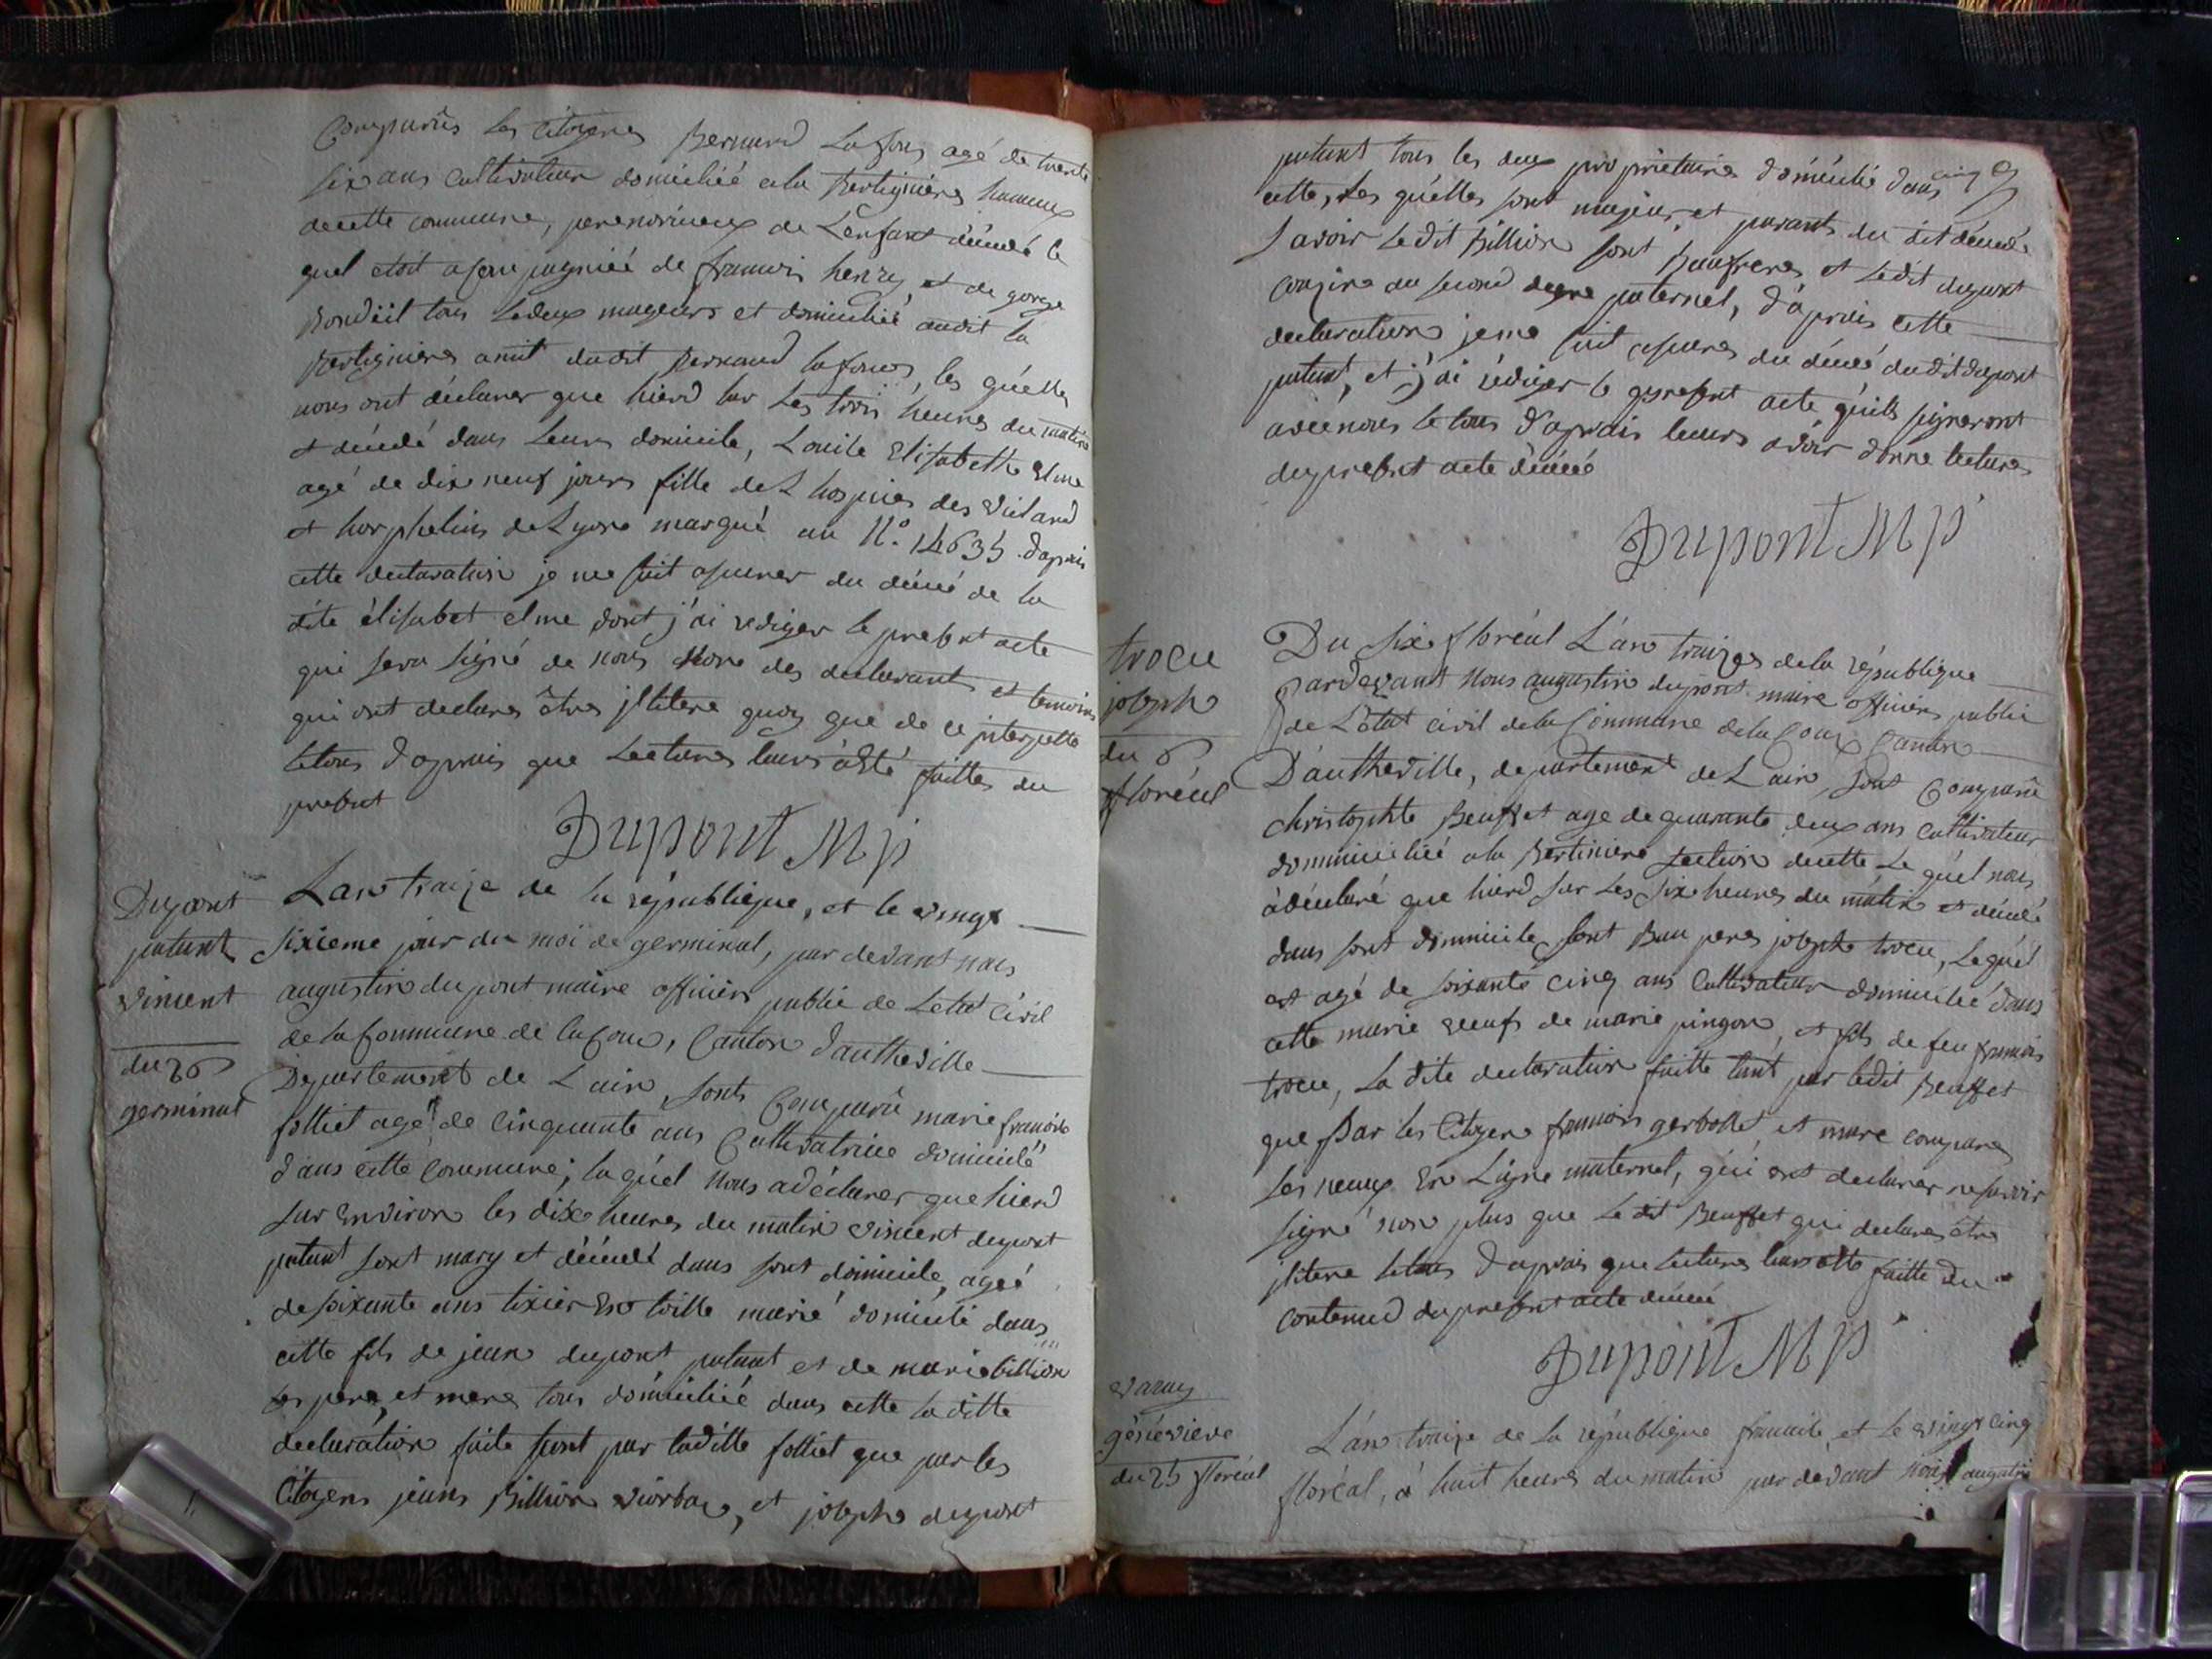 Comparûs les Citoyens Bernard Lafons agé de trente
six ans cultivateur domicilié ala Bertignieres hameux
decette commune, pere nourricieux de L'enfant décedé le
quel etoit acompagnié de francois henry et de gorge
Bondÿil tous ledeux mageurs et domicilié audit la
Bertignieres amit dudit Bernard lafons, les quéelles
nous ont déclarer que hierd sur les trois heures du matin
et décedé dans leurs domicile, Louise Elisabethe Elme
agé de dixe neuf jours fille de L hospices des vieliard
et horphelins de Lyons marqué au N.° 14635 d'aprais
cette declaration je me suit assurer du décée de la
dite élisabet elme dont j'ai rediger le present acte
qui sera signé de nous none des declarants et temoins
qui ont declarer être jllitere quoy que de ce jnterpelle
letous d'aprais que Lectures leurs a été faittes du
present
Dupont M p
Dupont
putunt
vincent
du 26
germinal
L'ans traize de la république, et le vingt
sixieme jour du moi de germinal, par devant nous
augustin dupont maire officiers public de Letat Civil
de la Commune de lacoux, Canton d'autheville
Departement de L'ain, sont Comparû marie francoise
folliet agé de Cinquante ans Cultivatrice domicilé
d'ans cette Commune; laquél nous a déclarer que hierd
sur environ les dixe heures du matin vincent dupont
putunt sont mary et décedé dans sont domicile, ageé
de soixante ans tixier En toille marié domicilé dans
cette fils de jean dupont putunt et de marie billion
ses pere et mere tous domicilié dans cette la ditte
declaration faite sont par laditte folliet que par les
Citoyens jeans Billion viorbac, et josephe dupont
putunt tous les deux proprietaires domicilié dans
cette, Les quélles sont majeur et parants du dit décedé
savoir Ledit Billion sont Baufreres et ledit dupont
Cousins au second degre paternel, d'aprais cette
declaration je me suit assurer du décée dudit dupont
putunt, et j'ai rédiger le present acte qu'ils signeront
avec nous le tous d'aprais leurs avoir donné lectures
du present acte décée
Dupont M p
trocu
josephe
du 6
floréal
Du six floréal L'an traizes de la république
Pardevant Nous augustin dupont maire officiers public
de L'état civil de la Commune de la Coux Canton
D'autheville, departement de L'ain, sont Comparû
christophle Beuffet age de quarante deux ans cultivateur
dommicilié ala Bertiniere section decette Le quél nous
a déclaré que hierd sur Les six heures du mâtin et décedé
dans sont dommicile sont Bau peres josephe trocu, Lequél
est agé de soixante cinq ans Cultivateur domicilié dans
cette marie veufs de marie pingon, et fils de feu francois
trocu, La dite declaration faitte tant par ledit Beuffet
que Par les Citoyens francois gerbollet et marc compare
ses neveux En Ligne maternel, qui ont declarer ne savoir
signé non plus que Le dit Beuffet qui declares être
jlitere le tous d'aprais que lectures leurs atté faitte du
contenud du present acte décée
Dupont M p
varay
généviève
du 25 floréal
L'ans traize de la république francaise, et Le vingt cinq
floréal, à huit heures du matin par devant nous augustin